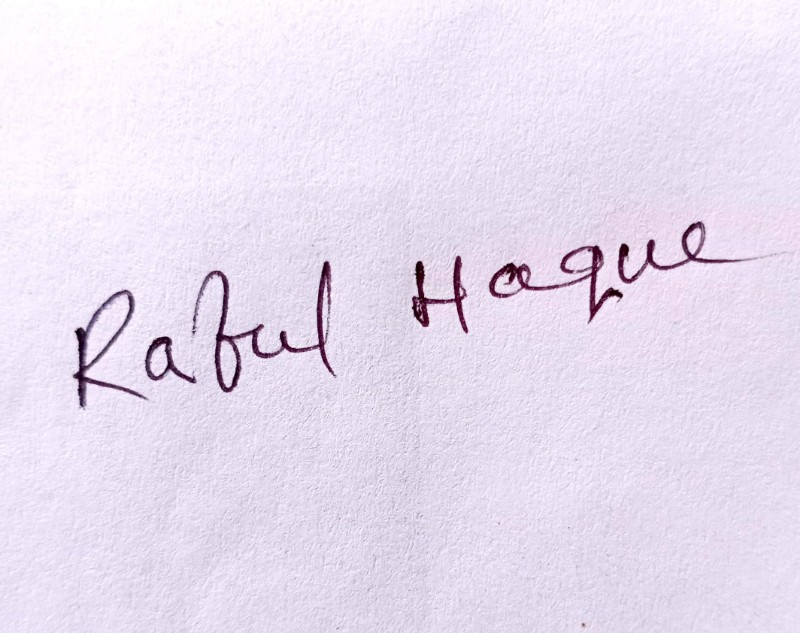 Raful Haque